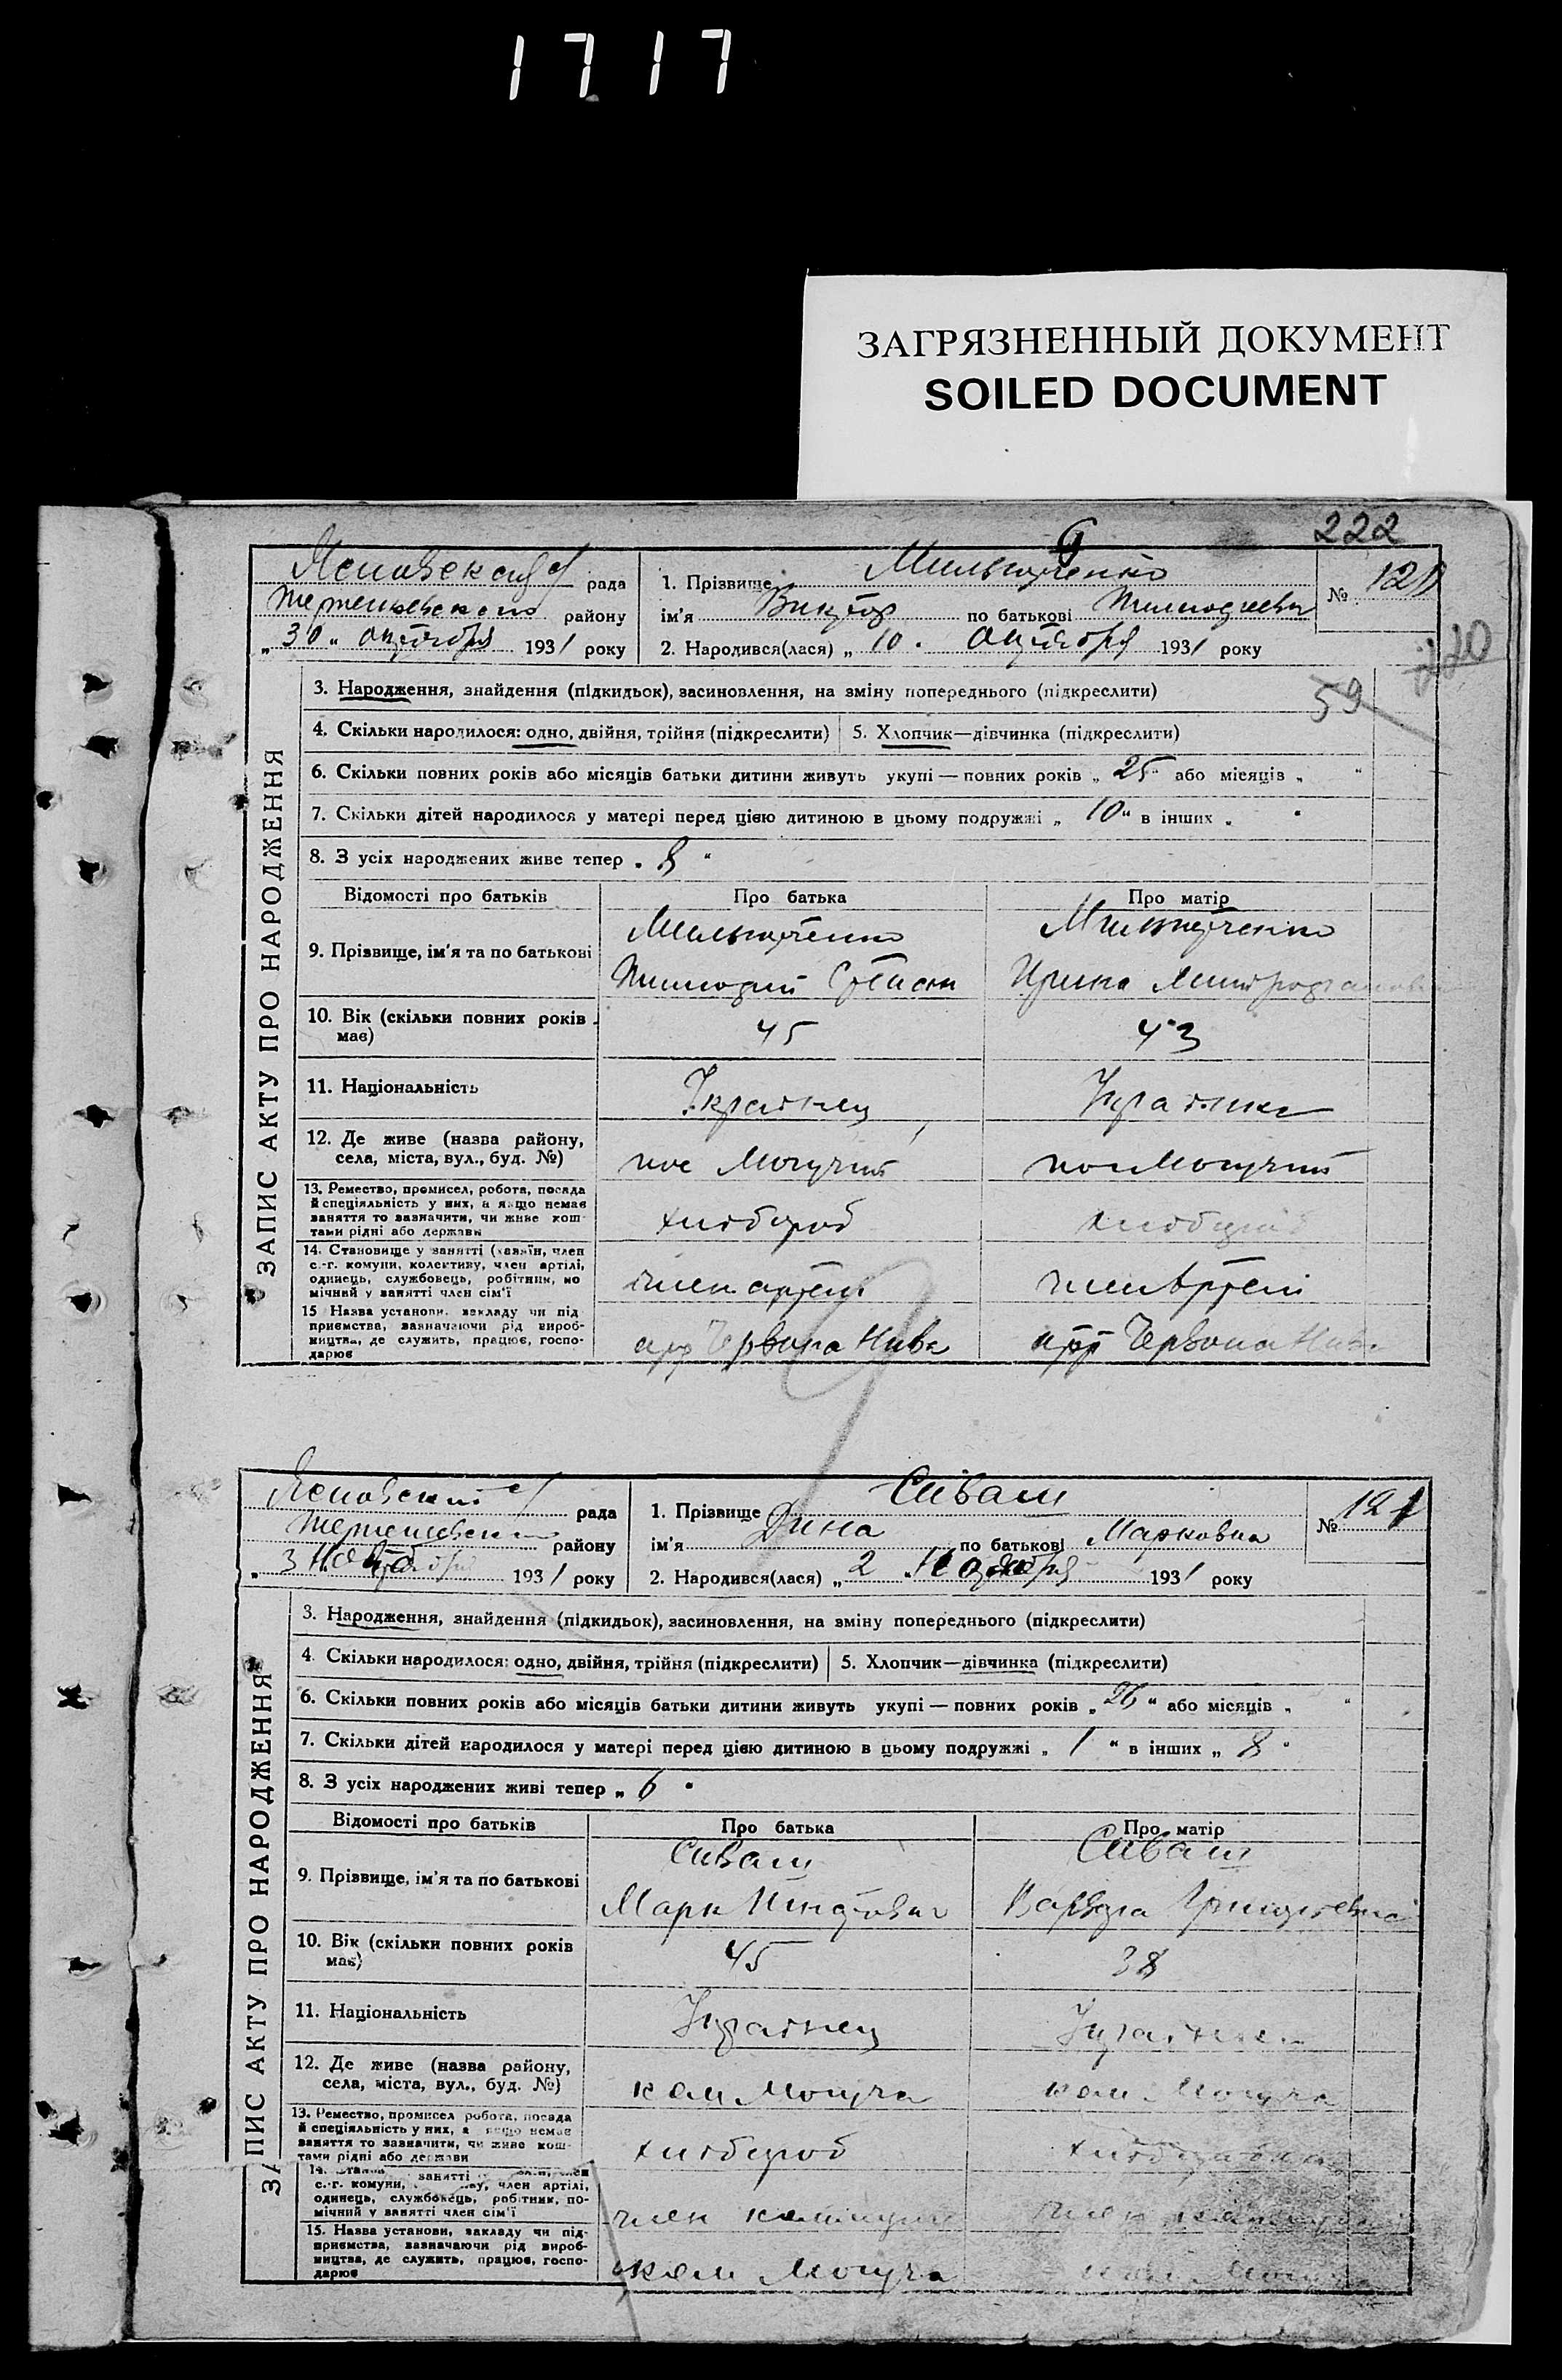 1717
ЗАГРЯЗНЕННЫЙ ДОКУМЕНТ
SOILED DOCUMENT
222
рада
району
„30“ октября 1931 року
1. Прізвище Мильниченко
ім'я Виктор по батькові
2. Народився(лася) „10. октября 1931 року
№ 120
220
59
ЗАПИС АКТУ ПРО НАРОДЖЕННЯ
3. Народження, знайдення (підкидьок), засиновлення, на зміну попереднього (підкреслити)
4. Скільки народилося: одно, двійня, трійня (підкреслити) 5. Хлопчик—дівчинка (підкреслити)
6. Скільки повних років або місяців батьки дитини живуть укупі — повних років „25“ або місяців „ “
7. Скільки дітей народилося у матері перед цією дитиною в цьому подружжі „10“ в інших „ “
8. З усіх народжених живе тепер „8“
Відомості про батьків Про батька Про матір
9. Прізвище, ім'я та по батькові
10. Вік (скільки повних років має) 45 43
11. Національність Украинец Украинка
12. Де живе (назва району, села, міста, вул., буд. №) пос Могучий пос Могучий
13. Ремество, промисел, робота, посада
й спеціяльність у них, а якщо немає
заняття то зазначити, чи живе кош-
тами рідні або держави
хлебороб хлебороб
14. Становище у занятті (хазяїн, член
с.-г. комуни, колективу, член артілі,
одинець, службовець, робітник, по
мічний у занятті член сім'ї
член артели член артели
15 Назва установи, закладу чи під
приємства, зазначаючи рід вироб-
ництва, де служить, працює, госпо-
дарює
арт Червона Нива арт Червона Нива
рада
району
„3 ноября 1931 року
1. Прізвище Сиваш
ім'я Дина по батькові Марковна
2. Народився(лася) „2 „ ноября 1931 року
№ 121
ЗАПИС АКТУ ПРО НАРОДЖЕННЯ
3. Народження, знайдення (підкидьок), засиновлення, на зміну попереднього (підкреслити)
4. Скільки народилося: одно, двійня, трійня (підкреслити) 5. Хлопчик—дівчинка (підкреслити)
6. Скільки повних років або місяців батьки дитини живуть укупі — повних років „26“ або місяців „ “
7. Скільки дітей народилося у матері перед цією дитиною в цьому подружжі „ 1 “ в інших „ 8 “
8. З усіх народжених живі тепер „ 6 “
Відомості про батьків Про батька Про матір
Сиваш Сиваш
9. Прізвище, ім'я та по батькові
Марк
10. Вік (скільки повних років має) 45 38
11. Національність Украинец Украинка
12. Де живе (назва району, села, міста, вул., буд. №) ком Могуча ком Могуча
13. Ремество, промисел робота, посада
й спеціяльність у них, а якщо немає
заняття то зазначити, чи живе кош-
тами рідні або держави
хлебороб
занятті
с.-г. комуни, член артілі,
одинець, службовець, робітник, по-
мічний у занятті член сім'ї
член
15. Назва установи, закладу чи під-
приємства, зазначаючи рід вироб-
ництва, де служить, працює, госпо-
дарює
ком Могуча